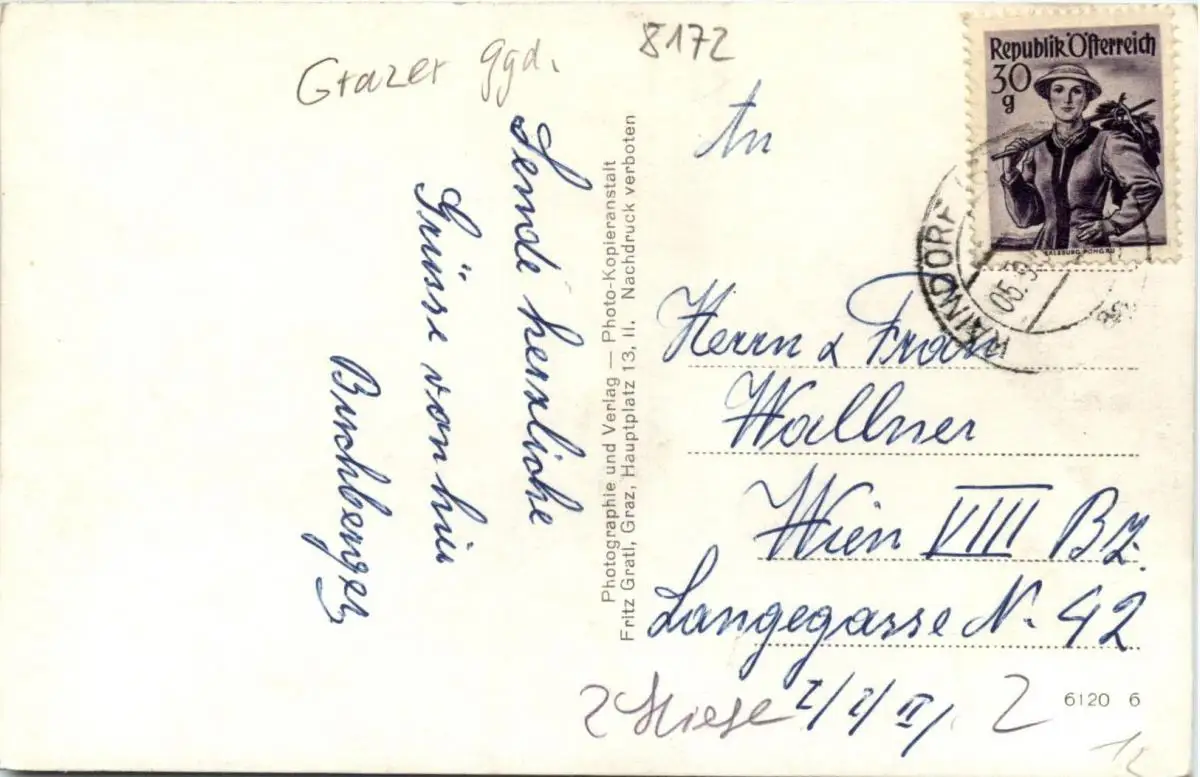 Grazer ggd.
8172
Sende herzliche
Grüsse von hier
Buchberger
Photographie und Verlag — Photo-Kopieranstalt
Fritz Gratl, Graz, Hauptplatz 13, II. Nachdruck verboten
Republik Österreich
30
g
SALZBURG, PONGAU
RAINDORF
05.9
An
Herrn & Frau
Wallner
Wien VIII Bz.
Langegasse N. 42
2
6120 6